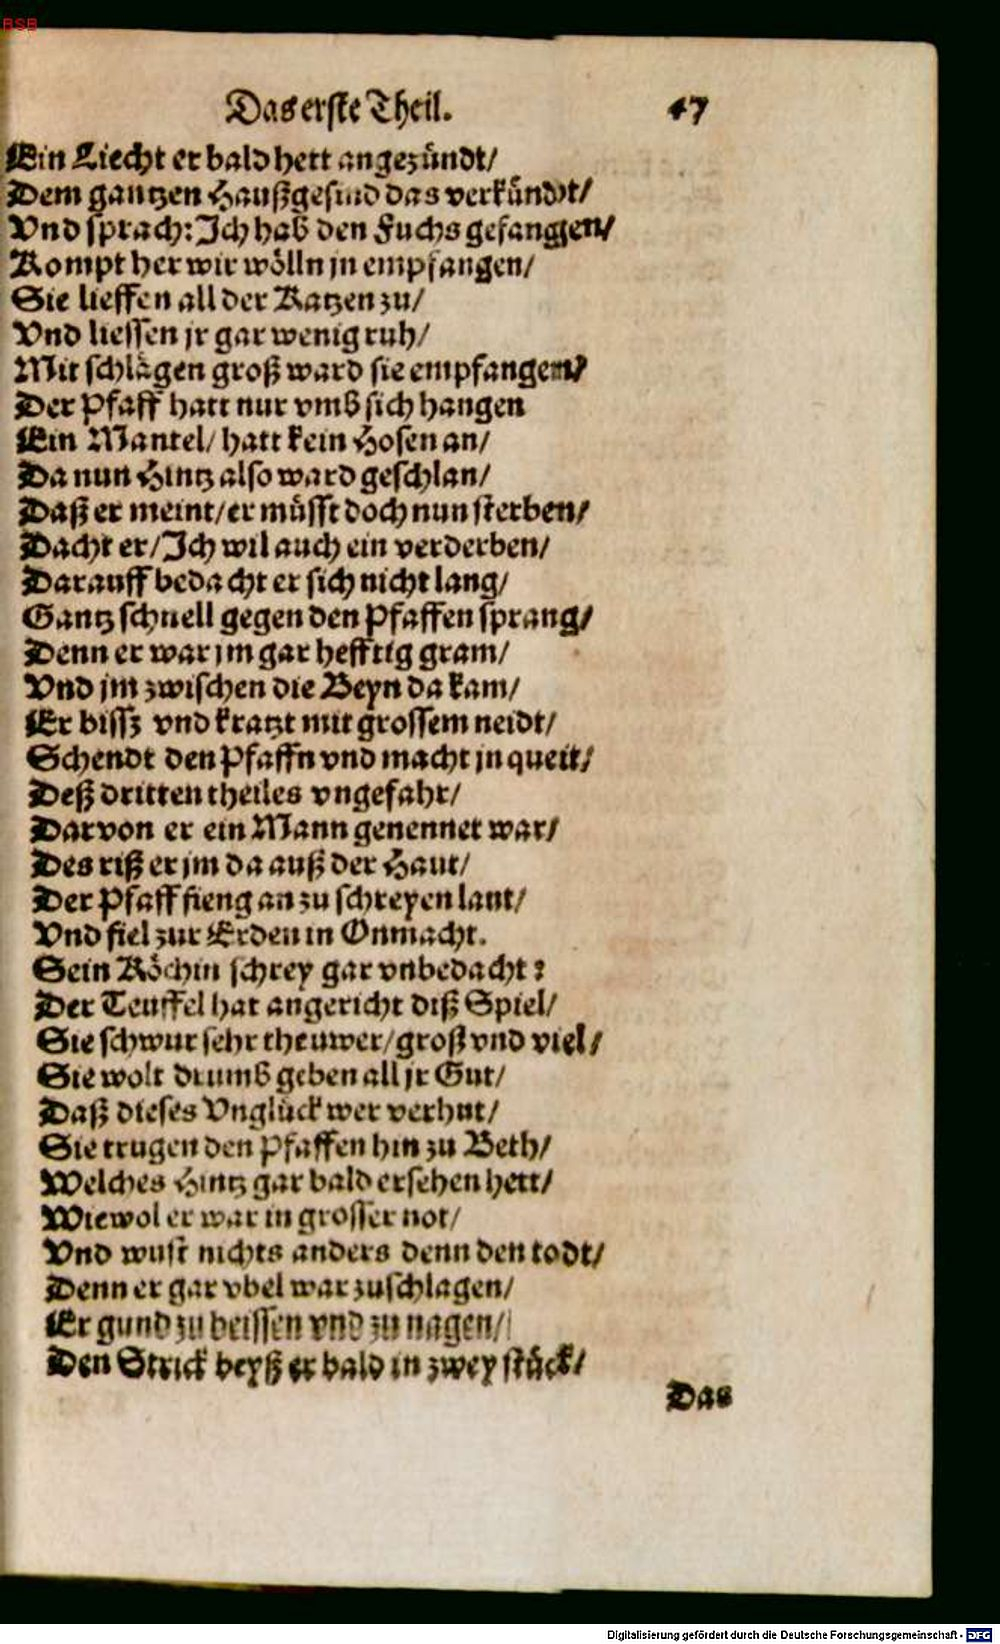 BSB
Das erste Theil. 47
Ein Liecht er bald hett angezündt/
Dem gantzen Haußgesind das verkündt/
Vnd sprach: Ich hab den Fuchs gefangen/
Kompt her wir wölln jn empfangen/
Sie lieffen all der Katzen zu/
Vnd liessen jr gar wenig ruh/
Mit schlägen groß ward sie empfangen/
Der Pfaff hatt nur vmb sich hangen
Ein Mantel/ hatt kein Hosen an/
Da nun Hintz also ward geschlan/
Daß er meint/ er müsst doch nun sterben/
Dacht er/ Ich wil auch ein verderben/
Darauff bedacht er sich nicht lang/
Gantz schnell gegen den Pfaffen sprang/
Denn er war jm gar hefftig gram/
Vnd jm zwischen die Beyn da kam/
Er bissz vnd kratzt mit grossem neidt/
Schendt den Pfaffn vnd macht jn queit/
Deß dritten theiles vngefahr/
Darvon er ein Mann genennet war/
Des riß er jm da auß der Haut/
Der Pfaff fieng an zu schreyen laut/
Vnd fiel zur Erden in Onmacht.
Sein Köchin schrey gar vnbedacht:
Der Teuffel hat angericht diß Spiel/
Sie schwur sehr theuwer/ groß vnd viel/
Sie wolt drumb geben all jr Gut/
Daß dieses Vnglück wer verhut/
Sie trugen den Pfaffen hin zu Beth/
Welches Hintz gar bald ersehen hett/
Wiewol er war in grosser not/
Vnd wust nichts anders denn den todt/
Denn er gar vbel war zuschlagen/
Er gund zu beissen vnd zu nagen/
Den Strick beyß er bald in zwey stück/
Das
Digitalisierung gefördert durch die Deutsche Forschungsgemeinschaft - DFG